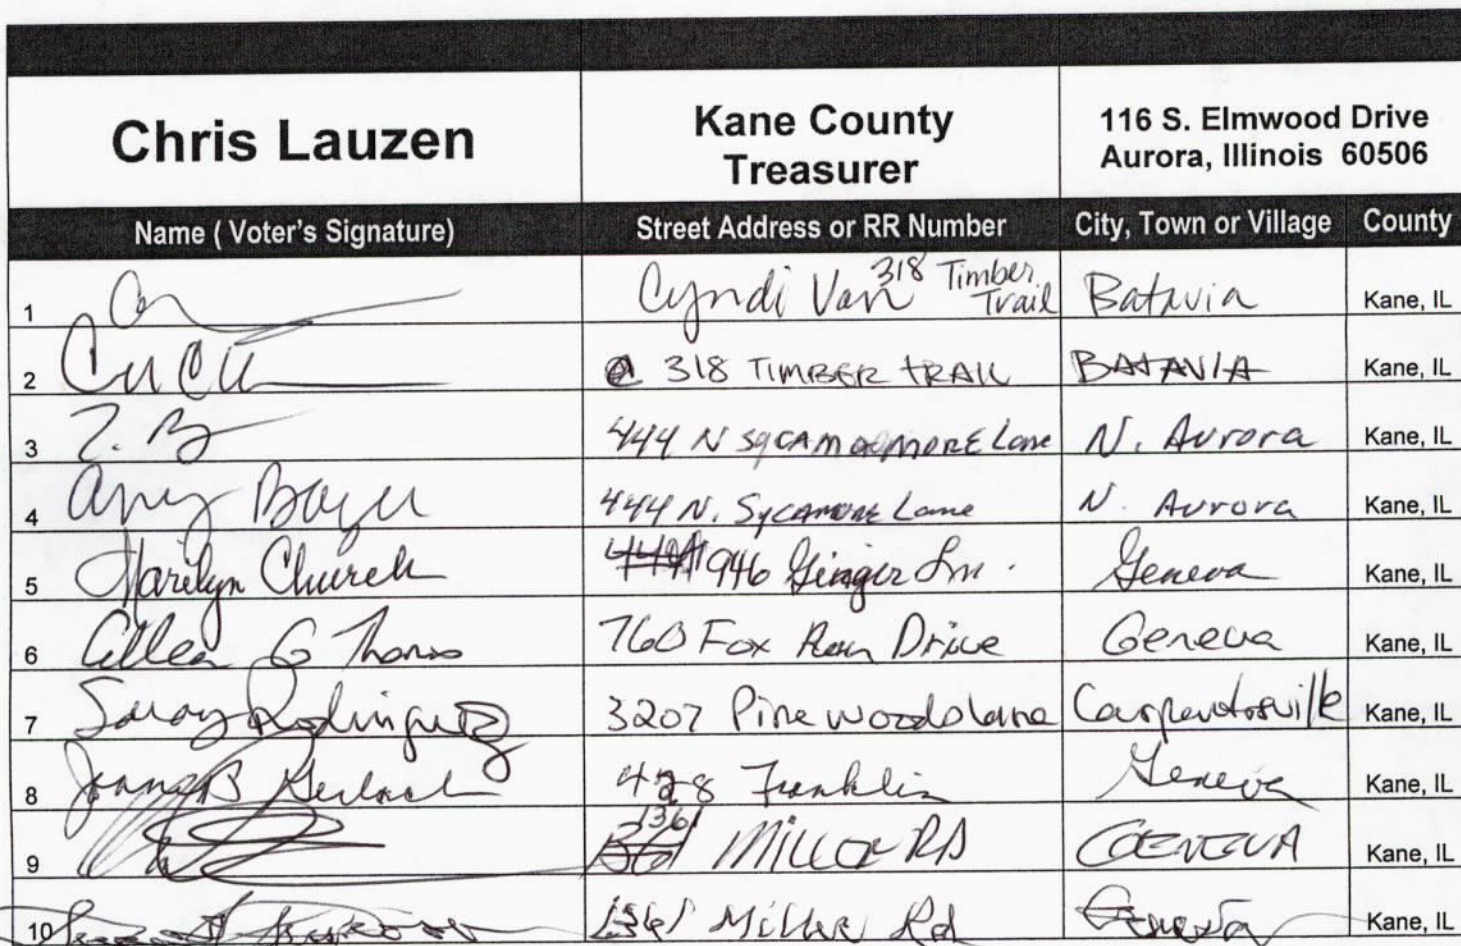 Chris Lauzen
Kane County
Treasurer
116 S. Elmwood Drive
Aurora, Illinois 60506
Name ( Voter's Signature) Street Address or RR Number City, Town or Village County
1 Cyndi Van 318 Timber Trail Batavia Kane, IL
2 @ 318 TIMBER TRAIL BATAVIA Kane, IL
3 444 N SYCAMOMORE Lane N. Aurora Kane, IL
4 Amy 444 N. Sycamore Lane N. Aurora Kane, IL
5 Marilyn Church 946 Ginger Ln. Geneva Kane, IL
6 Allen G Thoms 760 Fox Run Drive Geneva Kane, IL
7 Saray Rodriguez 3207 Pinewood lane Carpentersville Kane, IL
8 B Gerlach 428 Franklin Geneva Kane, IL
9 1361 MILLER RD GENEVA Kane, IL
10 1361 Miller Rd Geneva Kane, IL